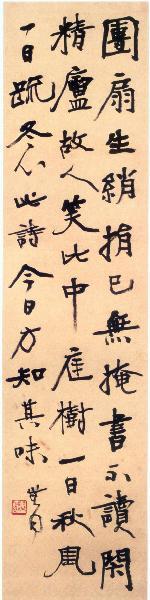 團扇生綃捐已無掩書不讀閉
精廬故人笑比中庭樹一日秋風
一日疏冬心此詩今日方知其味